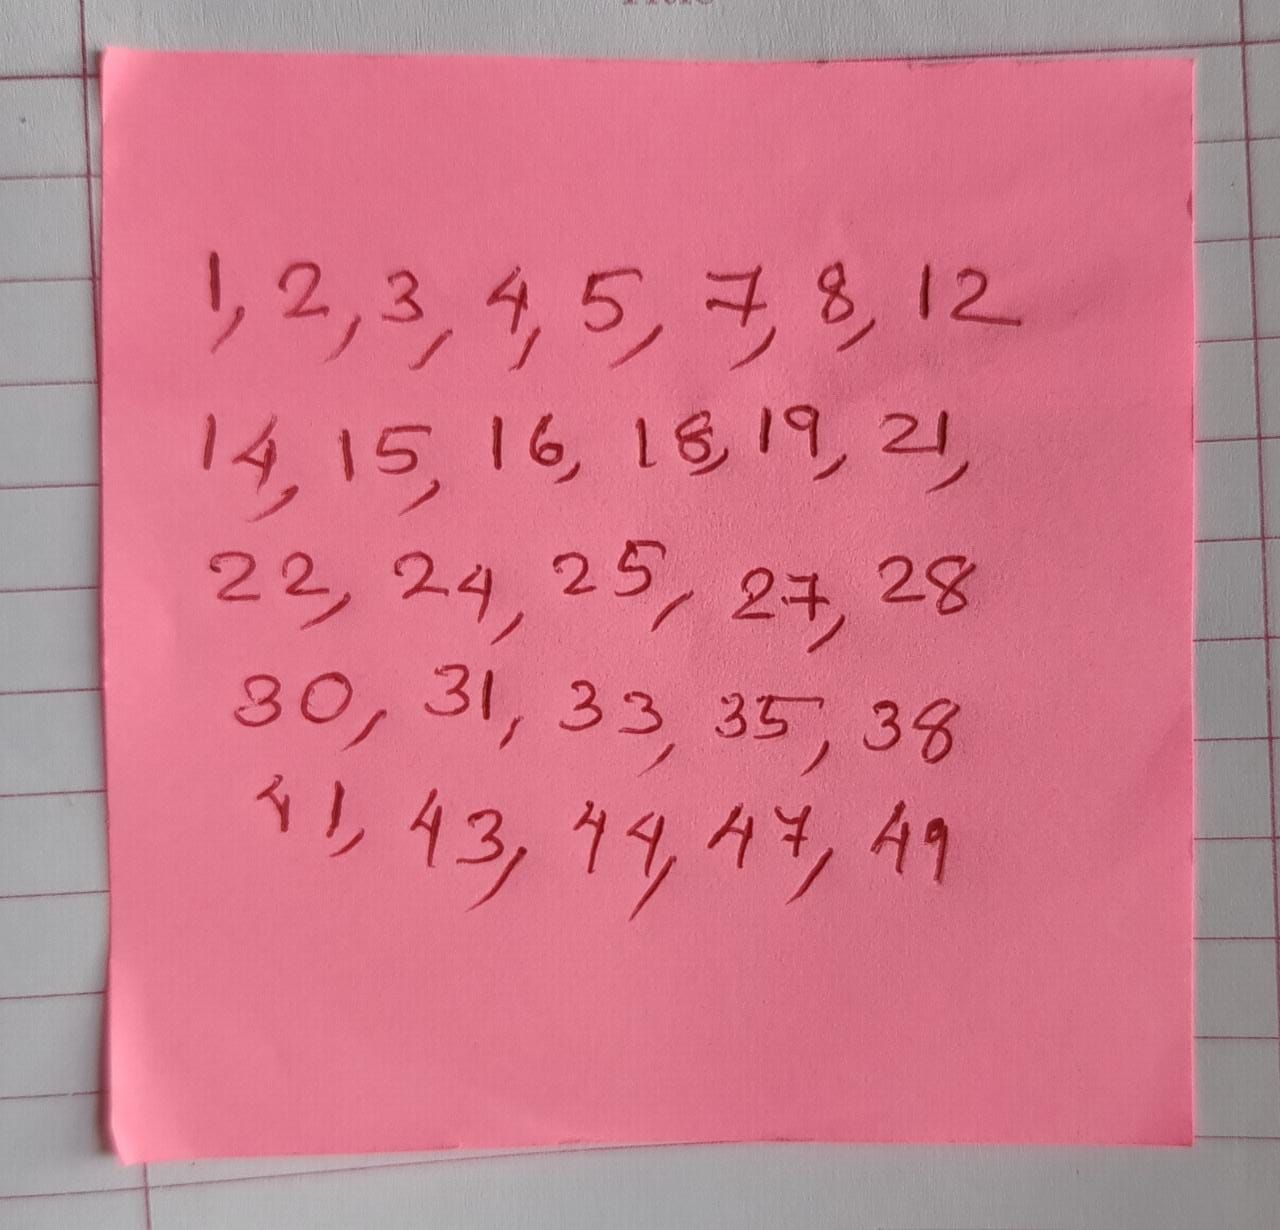 1, 2, 3, 4, 5, 7, 8, 12
14, 15, 16, 18, 19, 21,
22, 24, 25, 27, 28
30, 31, 33, 35, 38
41, 43, 44, 47, 49